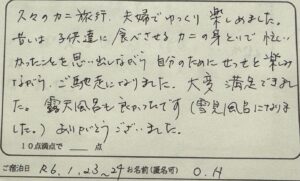 久々のカニ旅行、夫婦でゆっくり楽しめました。
昔いは子供達に食べさせるカニの身とりで忙し
かったことを思い出しながら自分のためにせっせと楽しみ
ながら、ご馳走になりました。大変満足できまし
た。露天風呂も良かったです(雪見風呂になりま
した。)ありがとうございました。
10点満点で　　　点
ご宿泊日 R6.1.23~24 お名前(匿名可) O.H